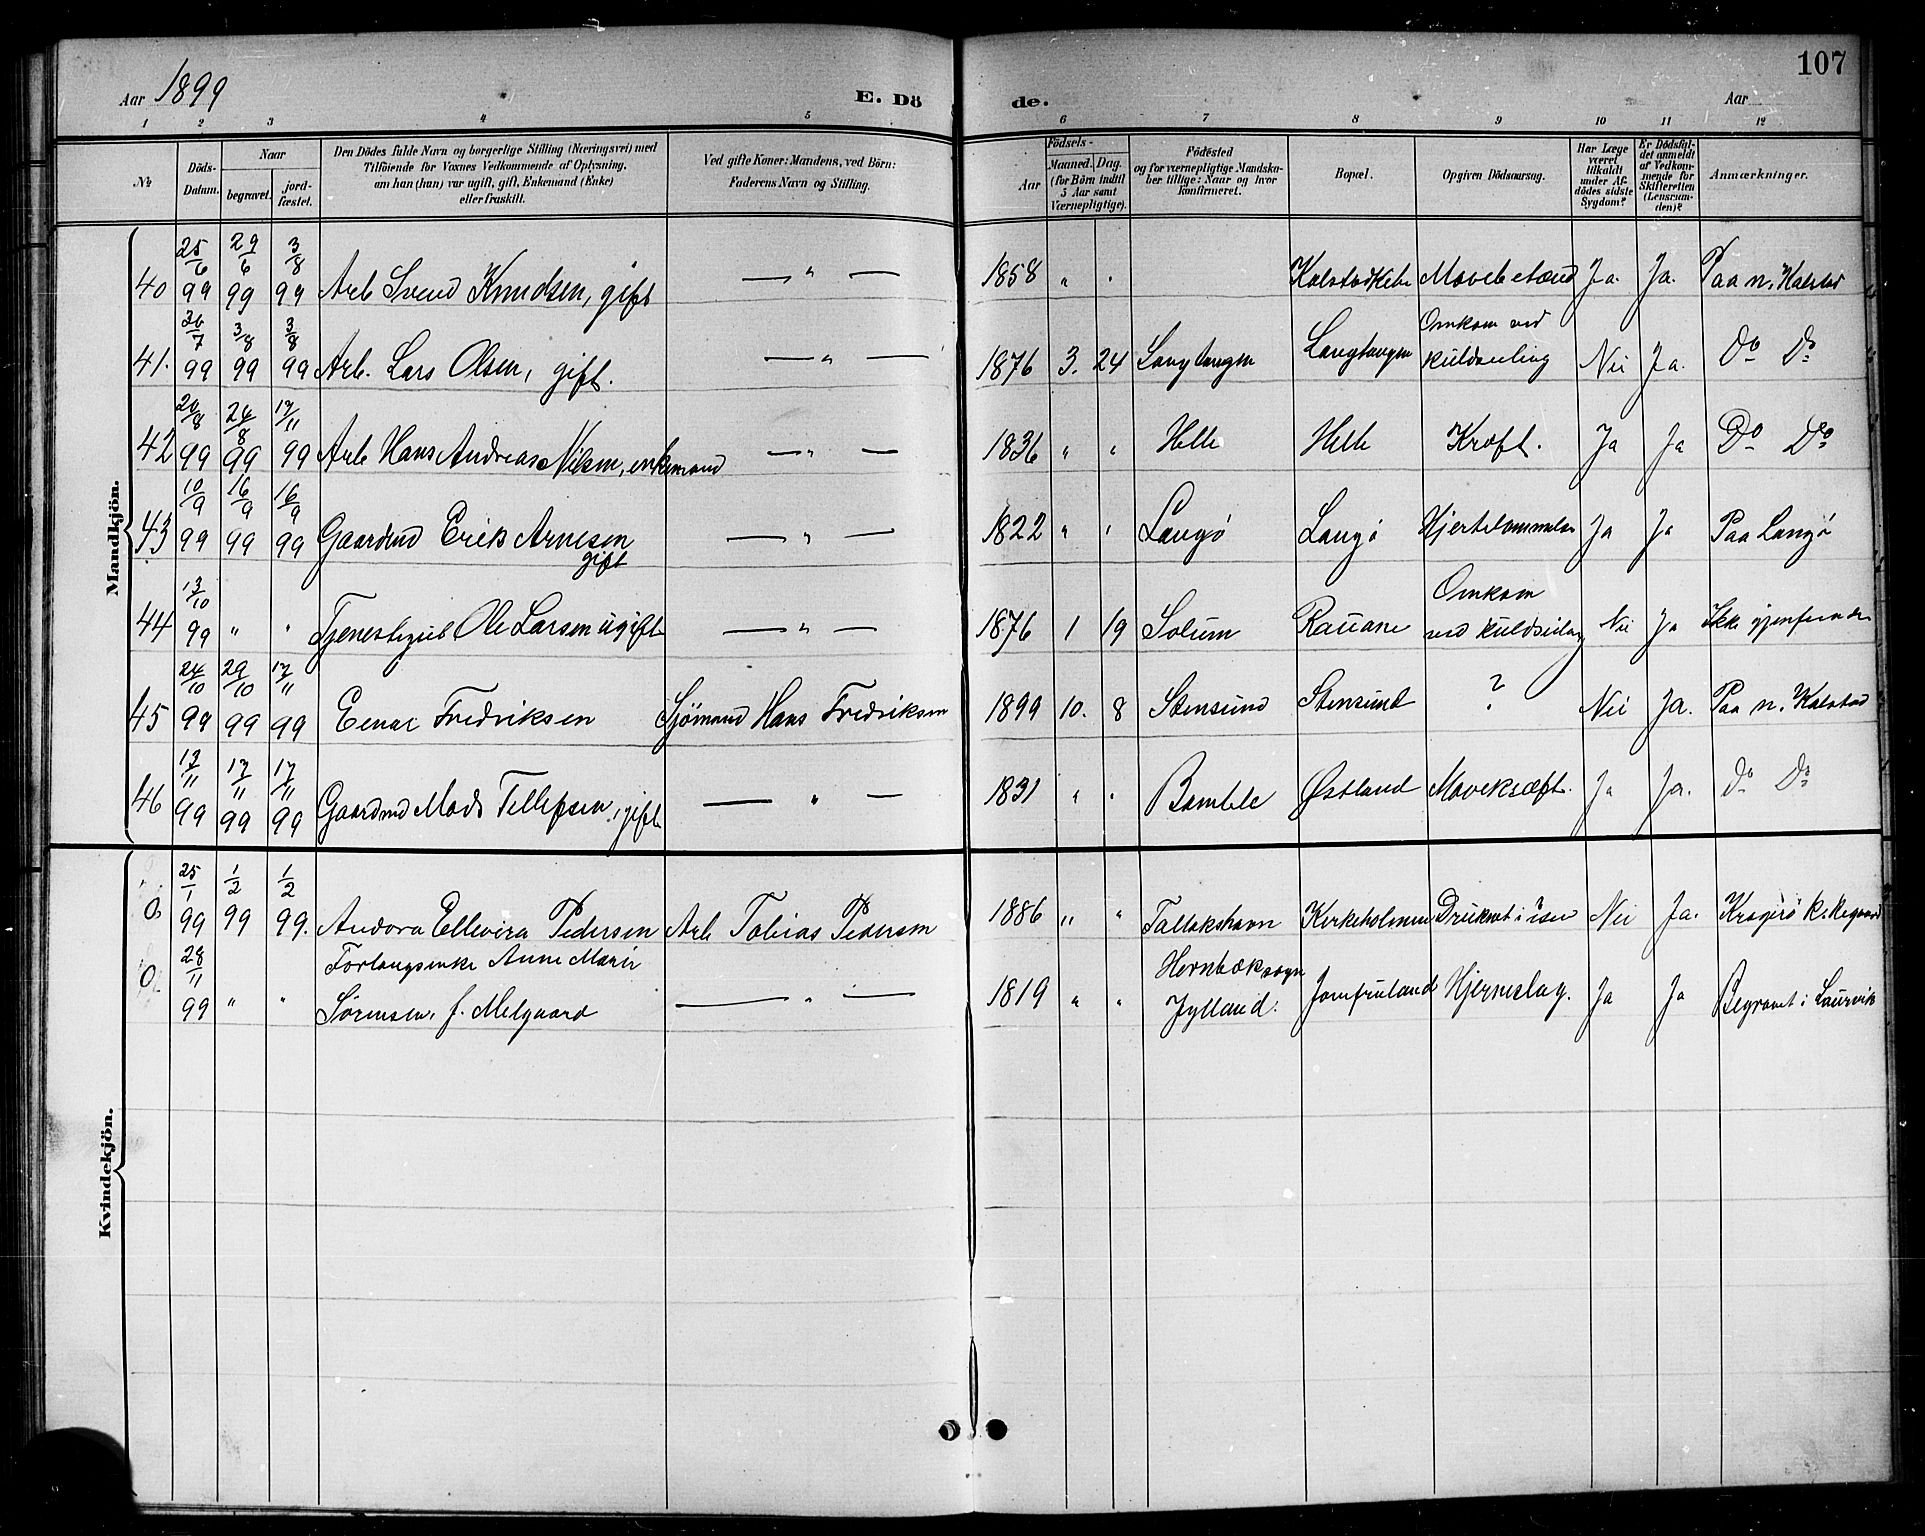 107
Aar 1899
E. Dö
de.
Aar
1 2 3 4 5 6 7 8 9 10 11 12
No
Döds-
Datum.
Naar
begravet.
jord-
fæstet.
Den Dödes fulde Navn og borgerlige Stilling (Næringsvei) med
Tilföiende for Voxnes Vedkommende af Oplysning,
om han (hun) var ugift, gift, Enkemand (Enke)
eller fraskilt.
Ved gifte Koner: Mandens, ved Börn:
Faderens Navn og Stilling.
Födsels-
Aar
Maaned.
Dag.
(for Börn indtil
5 Aar samt
Værnepligtige).
Födested
og for værnepligtige Mandska-
ber tillige: Naar og hvor
konfirmeret.
Bopæl.
Opgiven Dödsaarsag.
Har Læge
været
tilkaldt
under Af-
dödes sidste
Sygdom?
Er Dödsfal-
det anmeldt
af Vedkom-
mende for
Skifteretten
(Lensman-
den)?
Anmærkninger.
Mandkjön.
40 25/6 99 29/6 99 3/8 99 Arb Svend Knudsen, gift — " — 1858 " " Mavebetænd Ja. Ja. Paa n. Kalstad
41. 26/7 99 3/8 99 3/8 99 Arb. Lars Olsen, gift. — " — 1876 3. 24 Langtangen Langtangen Omkom ved
kuldseiling Nei Ja. Do Do
42 20/8 99 26/8 99 17/11 99 Arb Hans Andreas Nilsen, enkemand — " — 1836 " " Helle Helle Kræft. Ja Ja Do Do
43 10/9 99 16/9 99 16/9 99 Gaardmd Erik Arnesen
gift — " — 1822 " " Langø Langø Hjertelammelse Ja Ja Paa Langø
44 13/10 99 " " Tjenestegut Ole Larsen ugift — " — 1876 1 19 Solum Rauane Omkom
ved kuldseiling Nei Ja Ikke gjenfunden
45 24/10 99 29/10 99 17/11 99 Einar Fredriksen Sjömand Hans Fredriksen 1899 10. 8 Stensund Stensund ? Nei Ja. Paa n. Kalstad
46 13/11 99 17/11 99 17/11 99 Gaardmd Mads Tellefsen, gift — " — 1831 " " Bamble Østland Mavekræft. Ja Ja. Do Do
Kvindekjön.
0. 25/1 99 1/2 99 1/2 99. Andora Ellevira Pedersen Arb Tobias Pedersen 1886 " " Tallakshavn Kirkeholmen Druknet i isen Nei Ja. Kragerø Kirkegaard
0. 28/11 99 " " Forlangsenke Anne Marie
Sørensen, f. Melgaard — " — 1819 " " Hornbæksogn
Jylland. Jomfruland Hjerneslag. Ja Ja Begravet i Laurvik